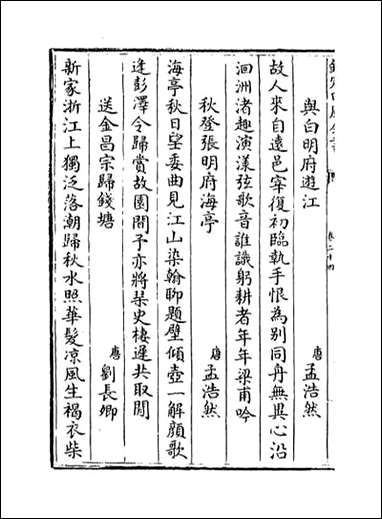 卷二十四
與白明府遊江　唐　孟浩然
故人來自遠邑宰復初臨執手恨為別同舟無異心沿
洄洲渚趣演漾弦歌音誰識躬耕者年年梁甫吟
秋登張明府海亭　唐　孟浩然
海亭秋日望委曲見江山染翰聊題壁傾壺一解顏歌
逢彭澤令歸賞故園間予亦將琹史棲遲共取閒
送金昌宗歸錢塘　唐　劉長卿
新家浙江上獨泛落潮歸秋水照華髮涼風生褐衣柴